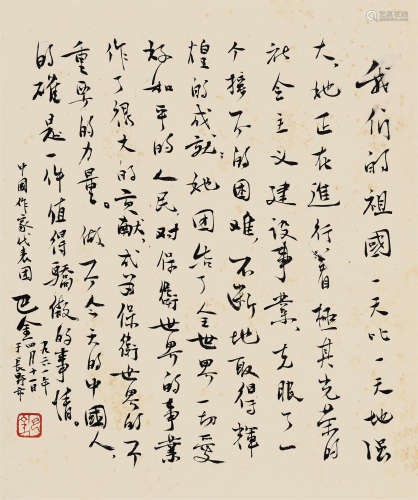 我们的祖國一天比一天地强
大。她正在進行着極其光荣的
社会主义建设事業，克服了一
个接一个的困难，不断地取得輝
煌的成就；她团结了全世界一切愛
好和平的人民对保衛世界的事業
作了很大的贡献，成为保衛世界的不
重要的力量。做一个今天的中國人，
的確是一件值得驕傲的事情。
中國作家代表团
巴金
一九六一年
四月十一日
于長野市